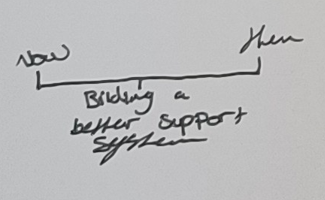 Now
then
Bilding a
better support
system